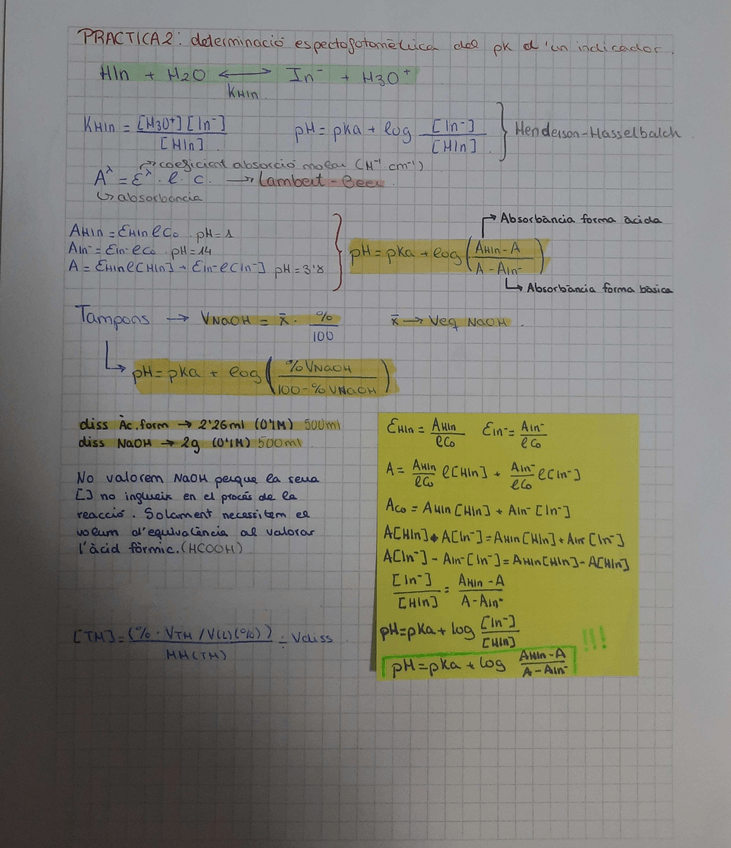 PRACTICA 2: determinació espectofotomètrica del pk d'un indicador.
HIn + H2O ⟷ In⁻ + H3O⁺
KHIn
KHIn = [H3O⁺][In⁻] / [HIn]
pH = pKa + log [In⁻] / [HIn] } Henderson-Hasselbalch
→ coeficient absorció molar (M⁻¹ cm⁻¹)
A^λ = ε^λ · l · c. → Lambert-Beer
↳ absorbància
AHIn = εHIn l Co pH = 1
AIn⁻ = εIn⁻ l Co pH = 14
A = εHIn l [HIn] + εIn⁻ l [In⁻] pH = 3'8
→ Absorbància forma àcida
pH = pKa + log (AHIn - A / A - AIn⁻)
↳ Absorbància forma bàsica
Tampons → VNaOH = x̄ · % / 100
x̄ → Veq NaOH.
↳ pH = pKa + log (% VNaOH / 100 - % VNaOH)
diss Àc. form → 2'26ml (0'1M) 500ml
diss NaOH → 2g (0'1M) 500ml
No valorem NaOH perque la seua
[] no influeix en el procés de la
reacció. Solament necessitem el
volum d'equivalència al valorar
l'àcid fòrmic. (HCOOH)
[TM] = (% · VTM / V(L)(%)) / MM(TM) = Vdiss
εHIn = AHIn / l Co εIn⁻ = AIn⁻ / l Co
A = AHIn / l Co l [HIn] + AIn⁻ / l Co l [In⁻]
A Co = AHIn [HIn] + AIn⁻ [In⁻]
A[HIn] + A[In⁻] = AHIn [HIn] + AIn⁻ [In⁻]
A[In⁻] - AIn⁻ [In⁻] = AHIn [HIn] - A[HIn]
[In⁻] / [HIn] = AHIn - A / A - AIn⁻
pH = pKa + log [In⁻] / [HIn] !!!
pH = pKa + log AHIn - A / A - AIn⁻